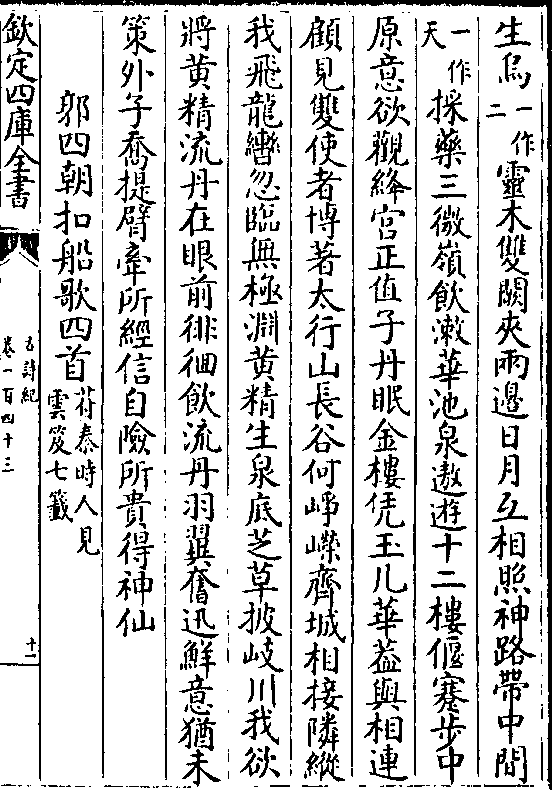 生烏一作二靈木雙闕夾兩邊日月互相照神路帶中間
一作天採藥三微嶺飲漱華池泉遨遊十二樓偃蹇步中
原意欲觀絳宮正值子丹眠金樓凭玉几華葢與相連
顧見雙使者博著太行山長谷何崢嶸齊城相接隣縱
我飛龍轡忽臨無極淵黄精生泉底芝草披岐川我欲
將黄精流丹在眼前徘徊飲流丹羽翼奮迅鮮意猶未
策外子喬提臂牽所經信自險所貴得神仙
郭四朝扣船歌四首苻秦時人見雲笈七籤
欽定四庫全書
古詩紀
卷一百四十三
十一